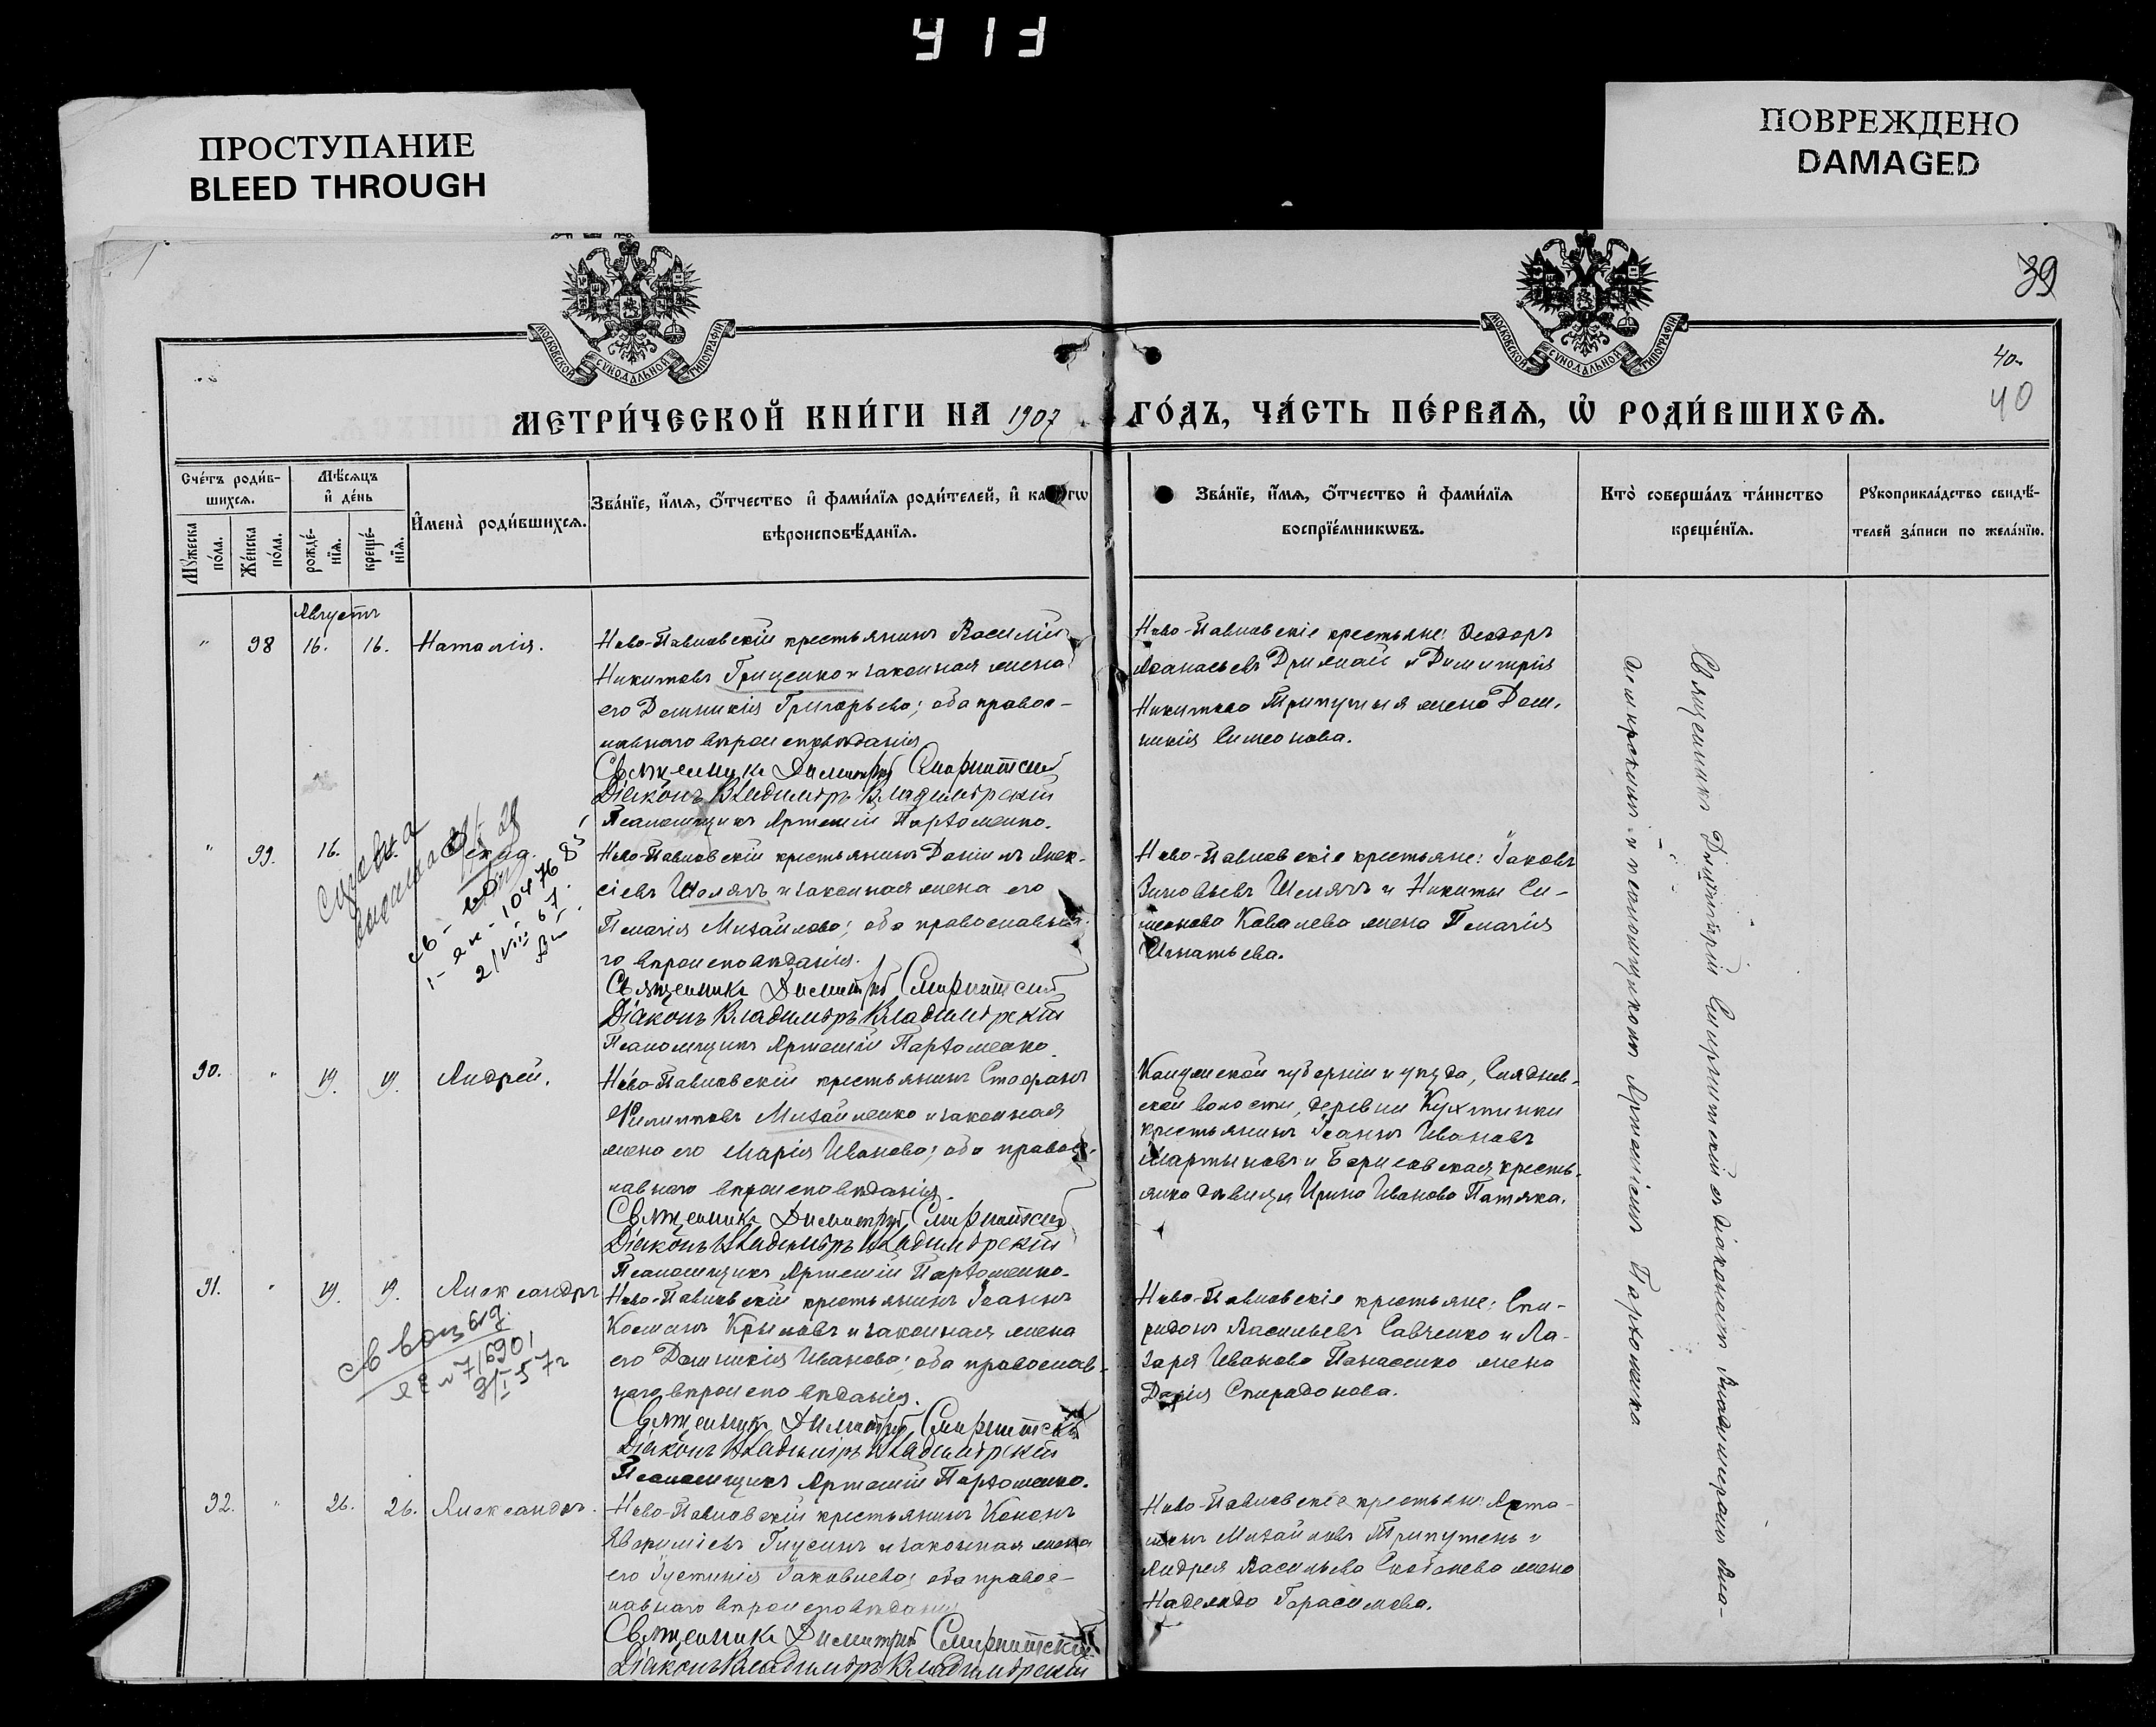 413
ПРОСТУПАНИЕ
BLEED THROUGH
ПОВРЕЖДЕНО
DAMAGED
МОСКОВСКОЙ СѴНОДАЛЬНОЙ ТИПОГРАФІИ
МОСКОВСКОЙ СѴНОДАЛЬНОЙ ТИПОГРАФІИ
39
40
40
МЕТРИ́ЧЕСКОЙ КНИ́ГИ НА 1907 ГО́ДЪ, ЧА́СТЬ ПЕ́РВАѦ, Ѡ҆ РОДИ́ВШИХСѦ.
Сче́тъ роди́в-
шихсѧ.
Мѣ́сѧцъ
и҆ де́нь
Мꙋ́жеска по́ла.
Же́нска по́ла.
рожде́-нїѧ.
креще́-нїѧ.
И҆мена̀ роди́вшихсѧ.
Зва́нїе, и҆́мѧ, о҆́тчество и҆ фами́лїѧ роди́телей, и҆ како́гѡ
вѣроисповѣ́данїѧ.
Зва́нїе, и҆́мѧ, о҆́тчество и҆ фами́лїѧ
воспрїе́мникѡвъ.
Кто̀ соверша́лъ та́инство
креще́нїѧ.
Рꙋкоприкла́дство свидѣ́-
телей за́писи по жела́нїю.
Августъ
" 98 16. 16. Наталія.
Ново-Павловскій крестьянинъ Василій
Никитовъ Гриценко и законная жена
его Домникія Григорьева; оба правос-
лавного вѣроисповѣданія
Священникъ Димитрій Смирнитскій
Діаконъ Владиміръ Владимірскій
Псаломщикъ Артемій Пархоменко.
Ново-Павловскіе крестьяне: Ѳеодоръ
Аѳанасьевъ Дрижай и Димитрія
Никитова Трипутня жена Дом-
никія Симеонова.
" 99. 16.
Ново-Павловскій крестьянинъ Даніилъ Алек-
сіевъ Шолягъ и законная жена его
Пелагія Михайлова; оба православна-
го вѣроисповѣданія.
Священникъ Димитрій Смирнитскій
Діаконъ Владиміръ Владимірскій
Псаломщикъ Артемій Пархоменко.
Ново-Павловскіе крестьяне: Іаковъ
Зиновьевъ Шелягъ и Никиты Си-
меонова Ковалева жена Пелагія
Игнатьева.
90. " 19. 19. Андрей.
Ново-Павловскій крестьянинъ Стефанъ
Филипповъ Михайленко и законная
жена его Марія Иванова; оба правос-
лавного вѣроисповѣданія.
Священникъ Димитрій Смирнитскій
Діаконъ Владиміръ Владимірскій
Псаломщикъ Артемій Пархоменко.
Калужской губерніи и уѣзда,
ской волости, деревни
крестьянинъ Іоаннъ Ивановъ
Мартыновъ и Борисовская кресть-
янка дѣвица Ирина Иванова
91. " 19. 19. Александръ
Ново-Павловскій крестьянинъ Іоаннъ
Косминъ Крыловъ и законная жена
его Домникія Иванова; оба православ-
наго вѣроисповѣданія.
Священникъ Димитрій Смирнитскій
Діаконъ Владиміръ Владимірскій
Псаломщикъ Артемій Пархоменко.
Ново-Павловскіе крестьяне: Спи-
ридонъ Васильевъ Савченко и Ла-
заря Иванова Панасенко жена
Дарія Спиридонова.
92. " 26. 26. Александръ.
Ново-Павловскій крестьянинъ Кононъ
законная жена
его Іустинія Іаковлева; оба правос-
лавнаго вѣроисповѣданія
Священникъ Димитрій Смирнитскій
Діаконъ Владиміръ Владимірскій
Ново-Павловскіе крестьяне: Арта-
монъ Михайловъ Трипутень и
Андрея Васильева жена
Надежда Герасимова.
Священникъ Димитрій Смирнитскій съ діакономъ Владиміромъ Вла-
димірскимъ и псаломщикомъ Артеміемъ Пархоменко